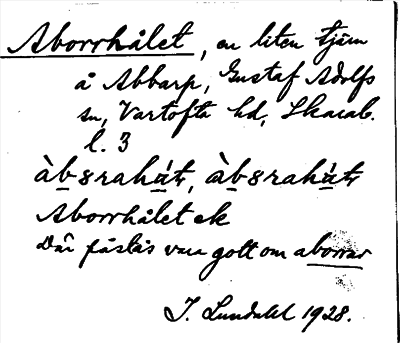 Aborrhålet, en liten tjärn
å Abbarp, Gustaf Adolfs
sn, Vartofta hd, Skarab.
l. 3
àbɞrahát, àbɞrahàt
Aborrhålet ek
Där påstås vara gott om aborrar
J. Lundahl 1928.